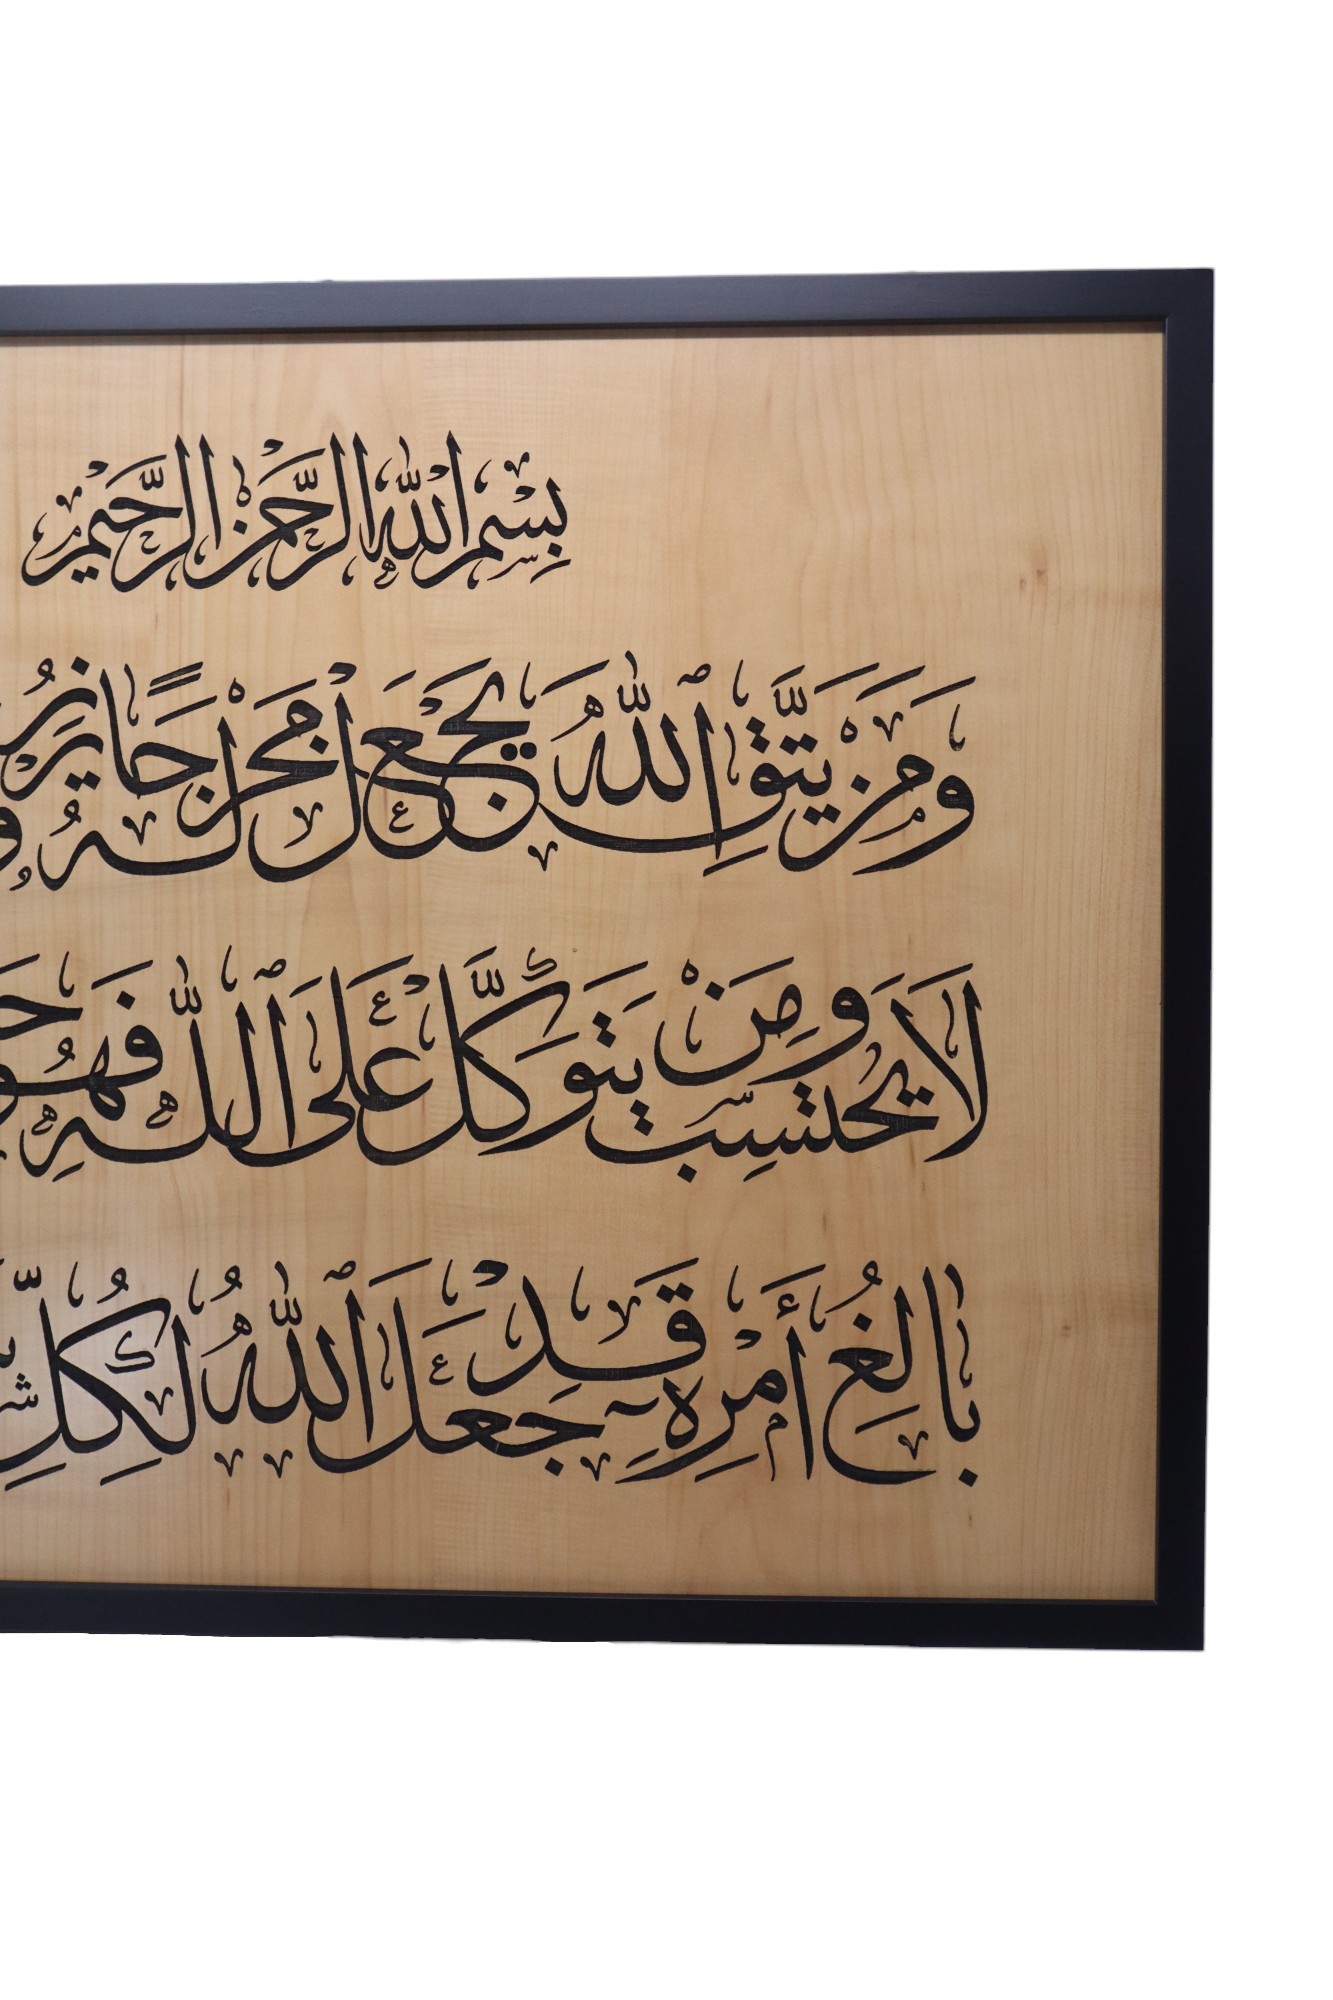 بِسْمِ اللَّهِ الرَّحْمٰنِ الرَّحِيمِ
وَمَنْ يَتَّقِ ٱللَّهَ يَجْعَلْ لَهُ مَخْرَجًا
لَا يَحْتَسِبُ وَمَنْ يَتَوَكَّلْ عَلَى ٱللَّهِ فَهُوَ
بَالِغُ أَمْرِهِ قَدْ جَعَلَ ٱللَّهُ لِكُلِّ